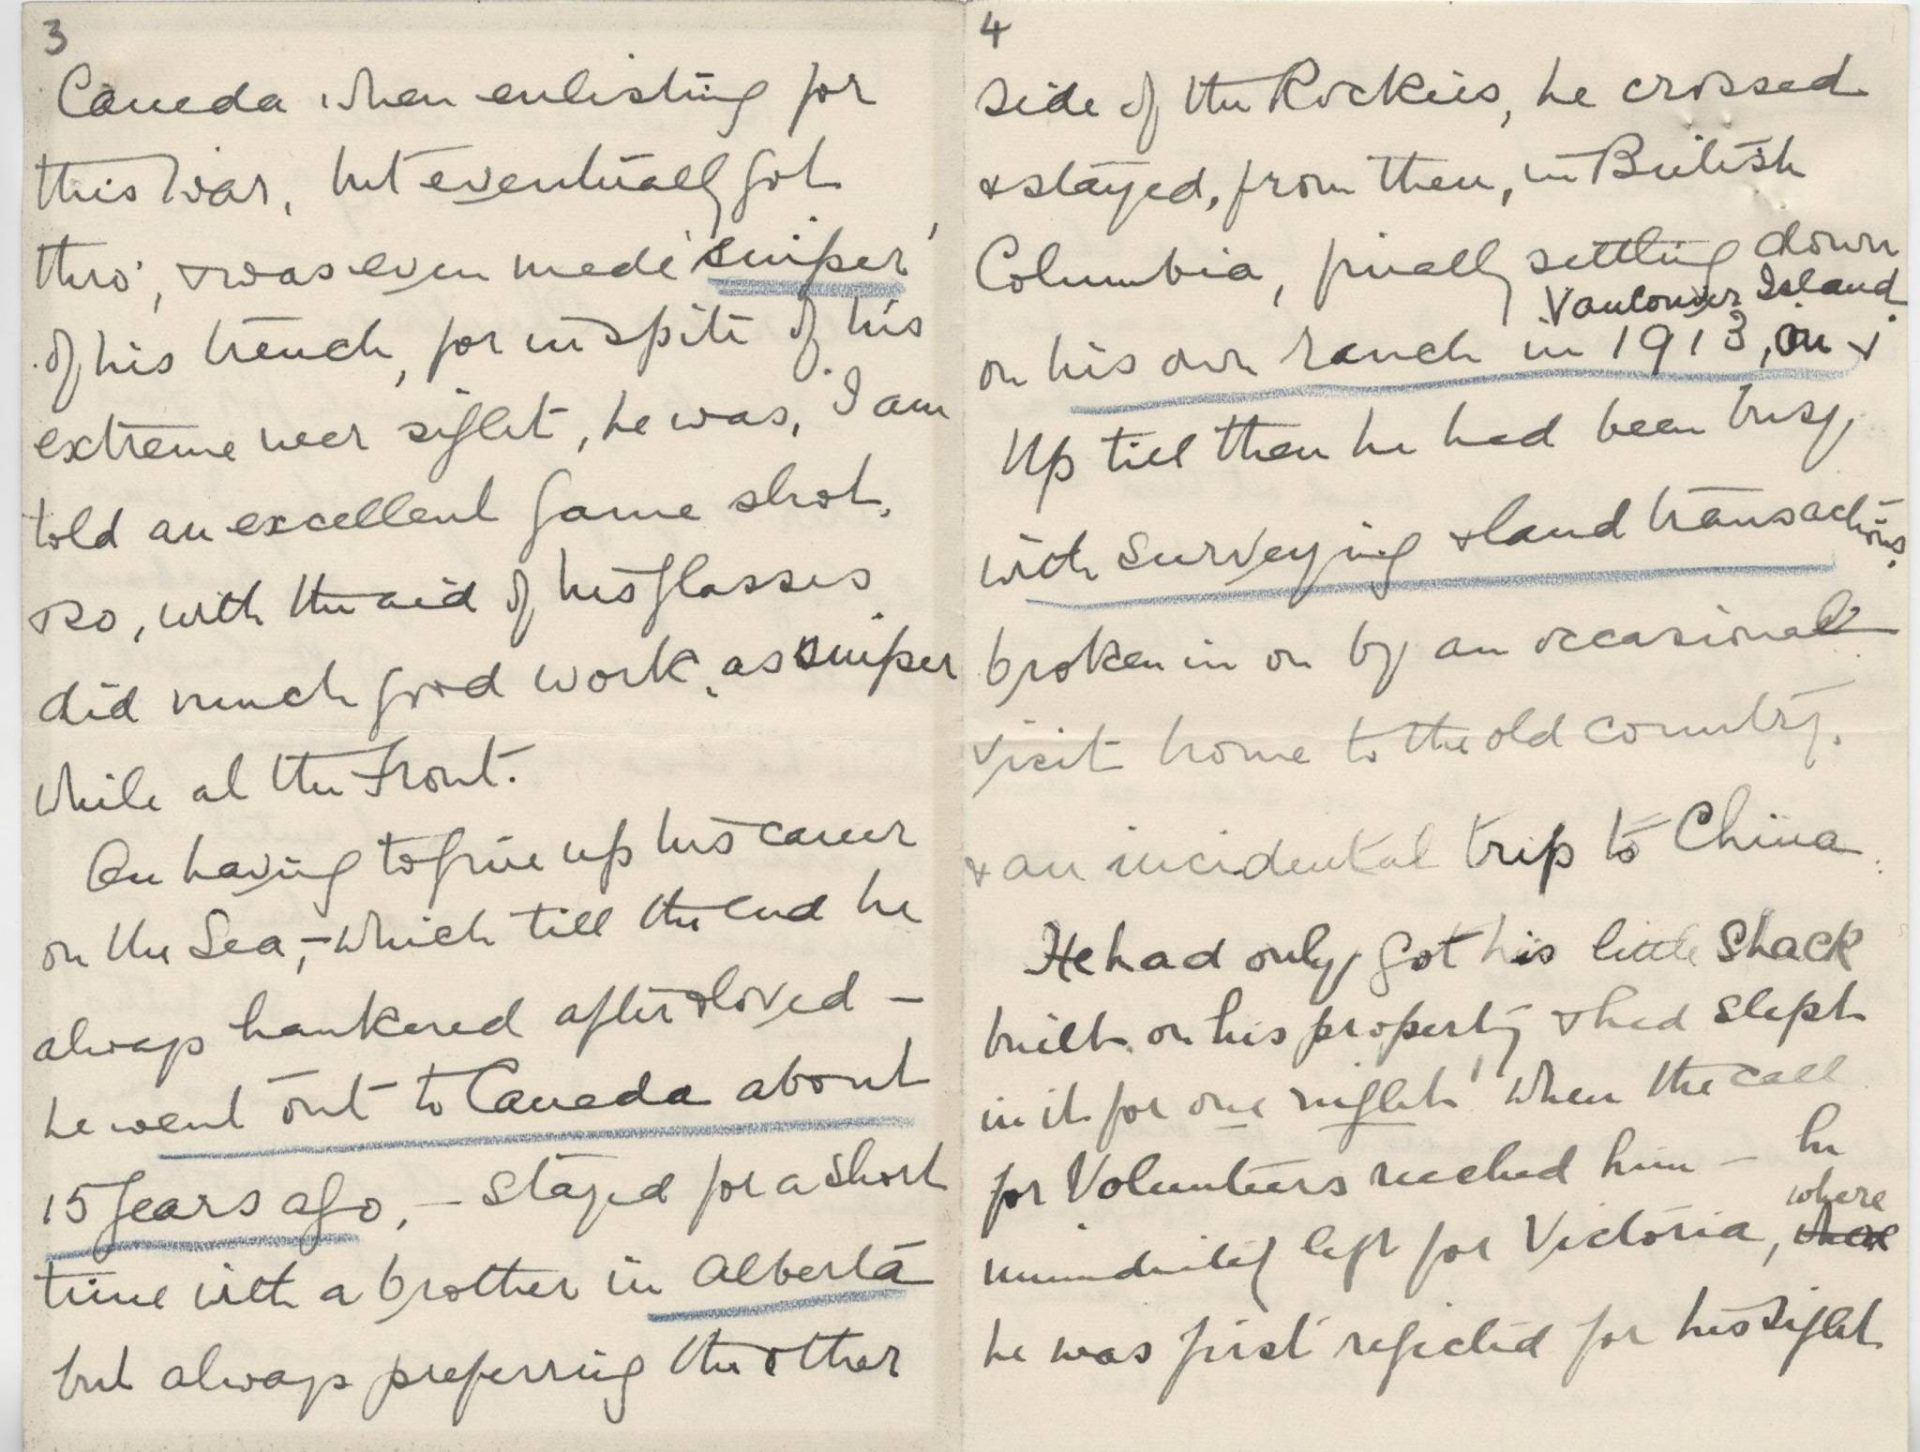 3
Canada when enlisting for
this War, but eventually got
thro', & was even made 'sniper'
of his trench, for in spite of his
extreme near sight, he was, I am
told an excellent game shot,
& so, with the aid of his glasses
did much good work, as sniper
while at the Front.
On having to give up his career
on the Sea, – which till the end he
always hankered after & loved –
he went out to Canada about
15 years ago, – stayed for a short
time with a brother in Alberta
but always preferring the other
4
side of the Rockies, he crossed
& stayed, from then, in British
Columbia, finally settling down
Vancouver Island.
on his own ranch in 1913, on
Up till then he had been busy
with surveying & land transactions,
broken in on by an occasional
visit home to the old country.
& an incidental trip to China.
He had only got his little shack
built on his property & had slept
in it for one night when the call
for Volunteers reached him – he
where
immediately left for Victoria,
he was first rejected for his sight